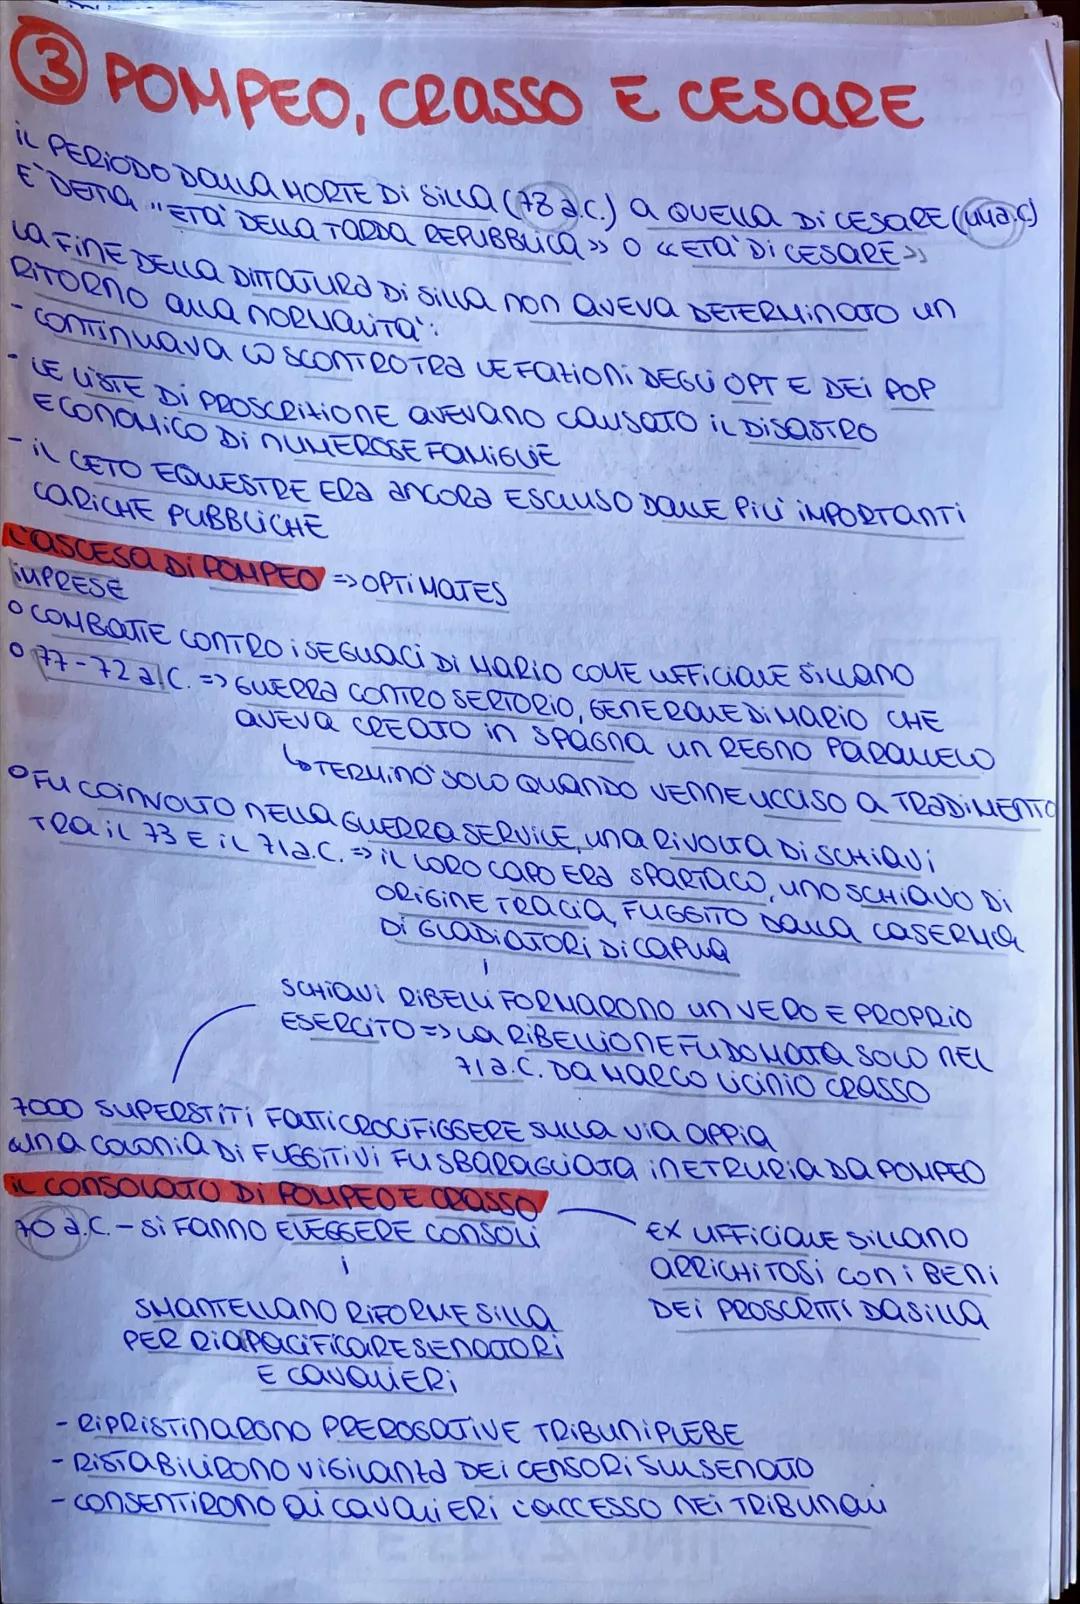 3 POMPEO, CRASSO E CESARE
IL PERIODO DALLA MORTE DI SILLA (78 a.C.) A QUELLA DI CESARE (44a.C)
E' DETTA "ETA' DELLA TARDA REPUBBLICA>> O <<ETA' DI CESARE>>
LA FINE DELLA DITTATURA DI SILLA NON AVEVA DETERMINATO UN
RITORNO ALLA NORMALITA':
- CONTINUAVA LO SCONTRO TRA LE FAZIONI DEGLI OPT E DEI POP
- LE LISTE DI PROSCRIZIONE AVEVANO CAUSATO IL DISASTRO
ECONOMICO DI NUMEROSE FAMIGLIE
- IL CETO EQUESTRE ERA ANCORA ESCLUSO DALLE PIU' IMPORTANTI
CARICHE PUBBLICHE
L'ASCESA DI POMPEO => OPTIMATES
IMPRESE
O COMBATTE CONTRO I SEGUACI DI MARIO COME UFFICIALE SILLANO
O 77-72 a.C. => GUERRA CONTRO SERTORIO, GENERALE DI MARIO CHE
AVEVA CREATO IN SPAGNA UN REGNO PARALLELO
↳ TERMINO' SOLO QUANDO VENNE UCCISO A TRADIMENTO
O FU COINVOLTO NELLA GUERRA SERVILE, UNA RIVOLTA DI SCHIAVI
TRA IL 73 E IL 71 a.C. => IL LORO CAPO ERA SPARTACO, UNO SCHIAVO DI
ORIGINE TRACIA, FUGGITO DALLA CASERMA
DI GLADIATORI DI CAPUA
SCHIAVI RIBELLI FORMARONO UN VERO E PROPRIO
ESERCITO => LA RIBELLIONE FU DOMATA SOLO NEL
71 a.C. DA MARCO LICINIO CRASSO
7000 SUPERSTITI FATTI CROCIFIGGERE SULLA VIA APPIA
UNA COLONIA DI FUGGITIVI FU SBARAGLIATA IN ETRURIA DA POMPEO
IL CONSOLATO DI POMPEO E CRASSO
70 a.C. - SI FANNO ELEGGERE CONSOLI
EX UFFICIALE SILLANO
ARRICHITOSI CON I BENI
DEI PROSCRITTI DA SILLA
SMANTELLANO RIFORME SILLA
PER RIAPACIFICARE SENATORI
E CAVALIERI
- RIPRISTINARONO PREROGATIVE TRIBUNI PLEBE
- RISTABILIRONO VIGILANZA DEI CENSORI SUL SENATO
- CONSENTIRONO AI CAVALIERI L'ACCESSO NEI TRIBUNALI